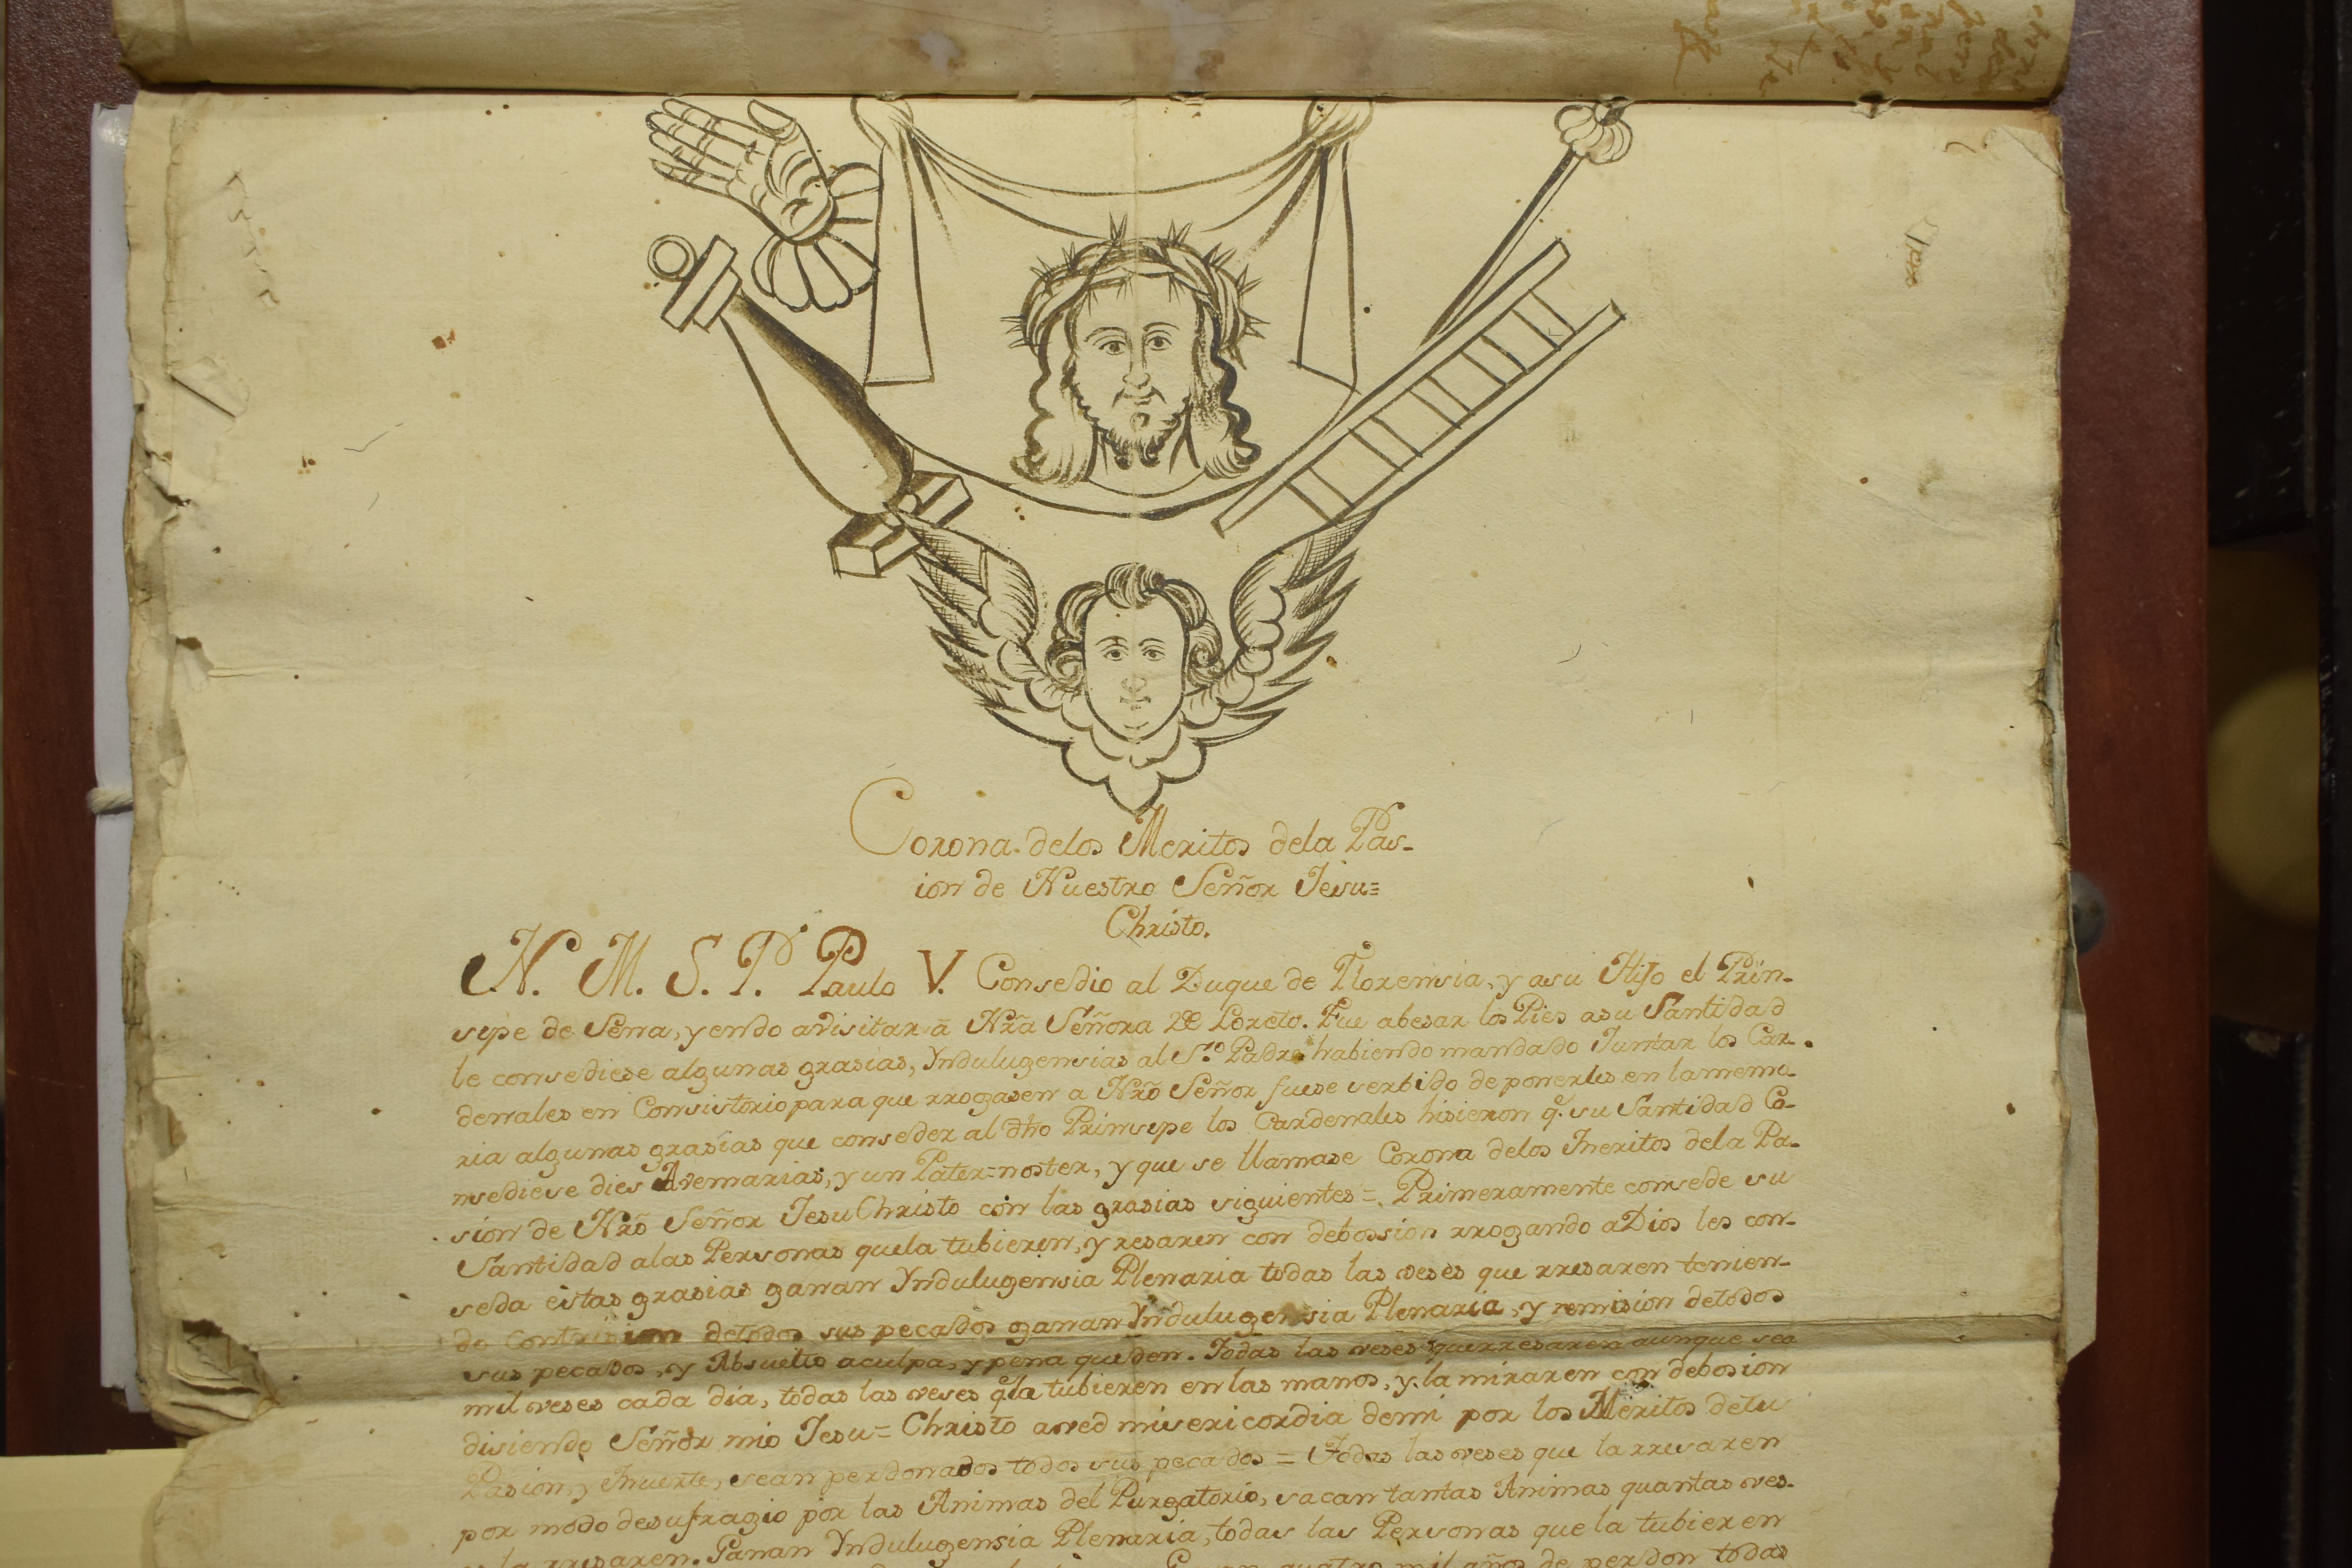 Corona. delos Meritos dela Pas-
ion de Nuestro Señor Jesu=
Christo.
N. M. S. P. Paulo V. Consedio al Duque de Florensia, y asu Hijo el Prin-
sipe de Sena, yendo avisitar ā Nrã Señora De Loreto. Fue abesar los Pies asu Santidad
le consediese algunas grasias, Yndulugensias al S.to Padre habiendo mandado Juntar los Car-
denales en Consistorio para que rrogasen a Nrõ Señor fuese serbido de ponerles en lamemo-
ria algunas grasias que conseder al dho Prinsipe los Cardenales hisieron q.e su Santidad Co-
nsediese dies Avemarias, y un Pater=noster, y que se llamase Corona delos Meritos dela Pa-
sion de Nrõ Señor Jesu Christo con las grasias siguientes =. Primeramente consede su
Santidad alas Personas quela tubieren, y resaren con debossion rrogando aDios les con-
seda estas grasias ganan Yndulugensia Plenaria todas las veses que rresaren tenien-
do Contrision detodos sus pecados ganan Yndulugensia Plenaria, y remision detodos
sus pecados, y Absuelto aculpa, y pena queden. Todas las veses querresaren aunque sea
mil veses cada dia, todas las veses q.e la tubieren en las manos, y la miraren con debosion
disiendo Señor mio Jesu=Christo aved misericordia demi por los Meritos detu
Pasion, y Muerte, sean perdonados todos sus pecados = Todas las veses que la rresaren
por modo desufragio por las Animas del Purgatorio, sacan tantas Animas quantas ves-
es la rresaren. Ganan Yndulugensia Plenaria, todas las Personas que la tubieren
quatro mil años de perdon todas